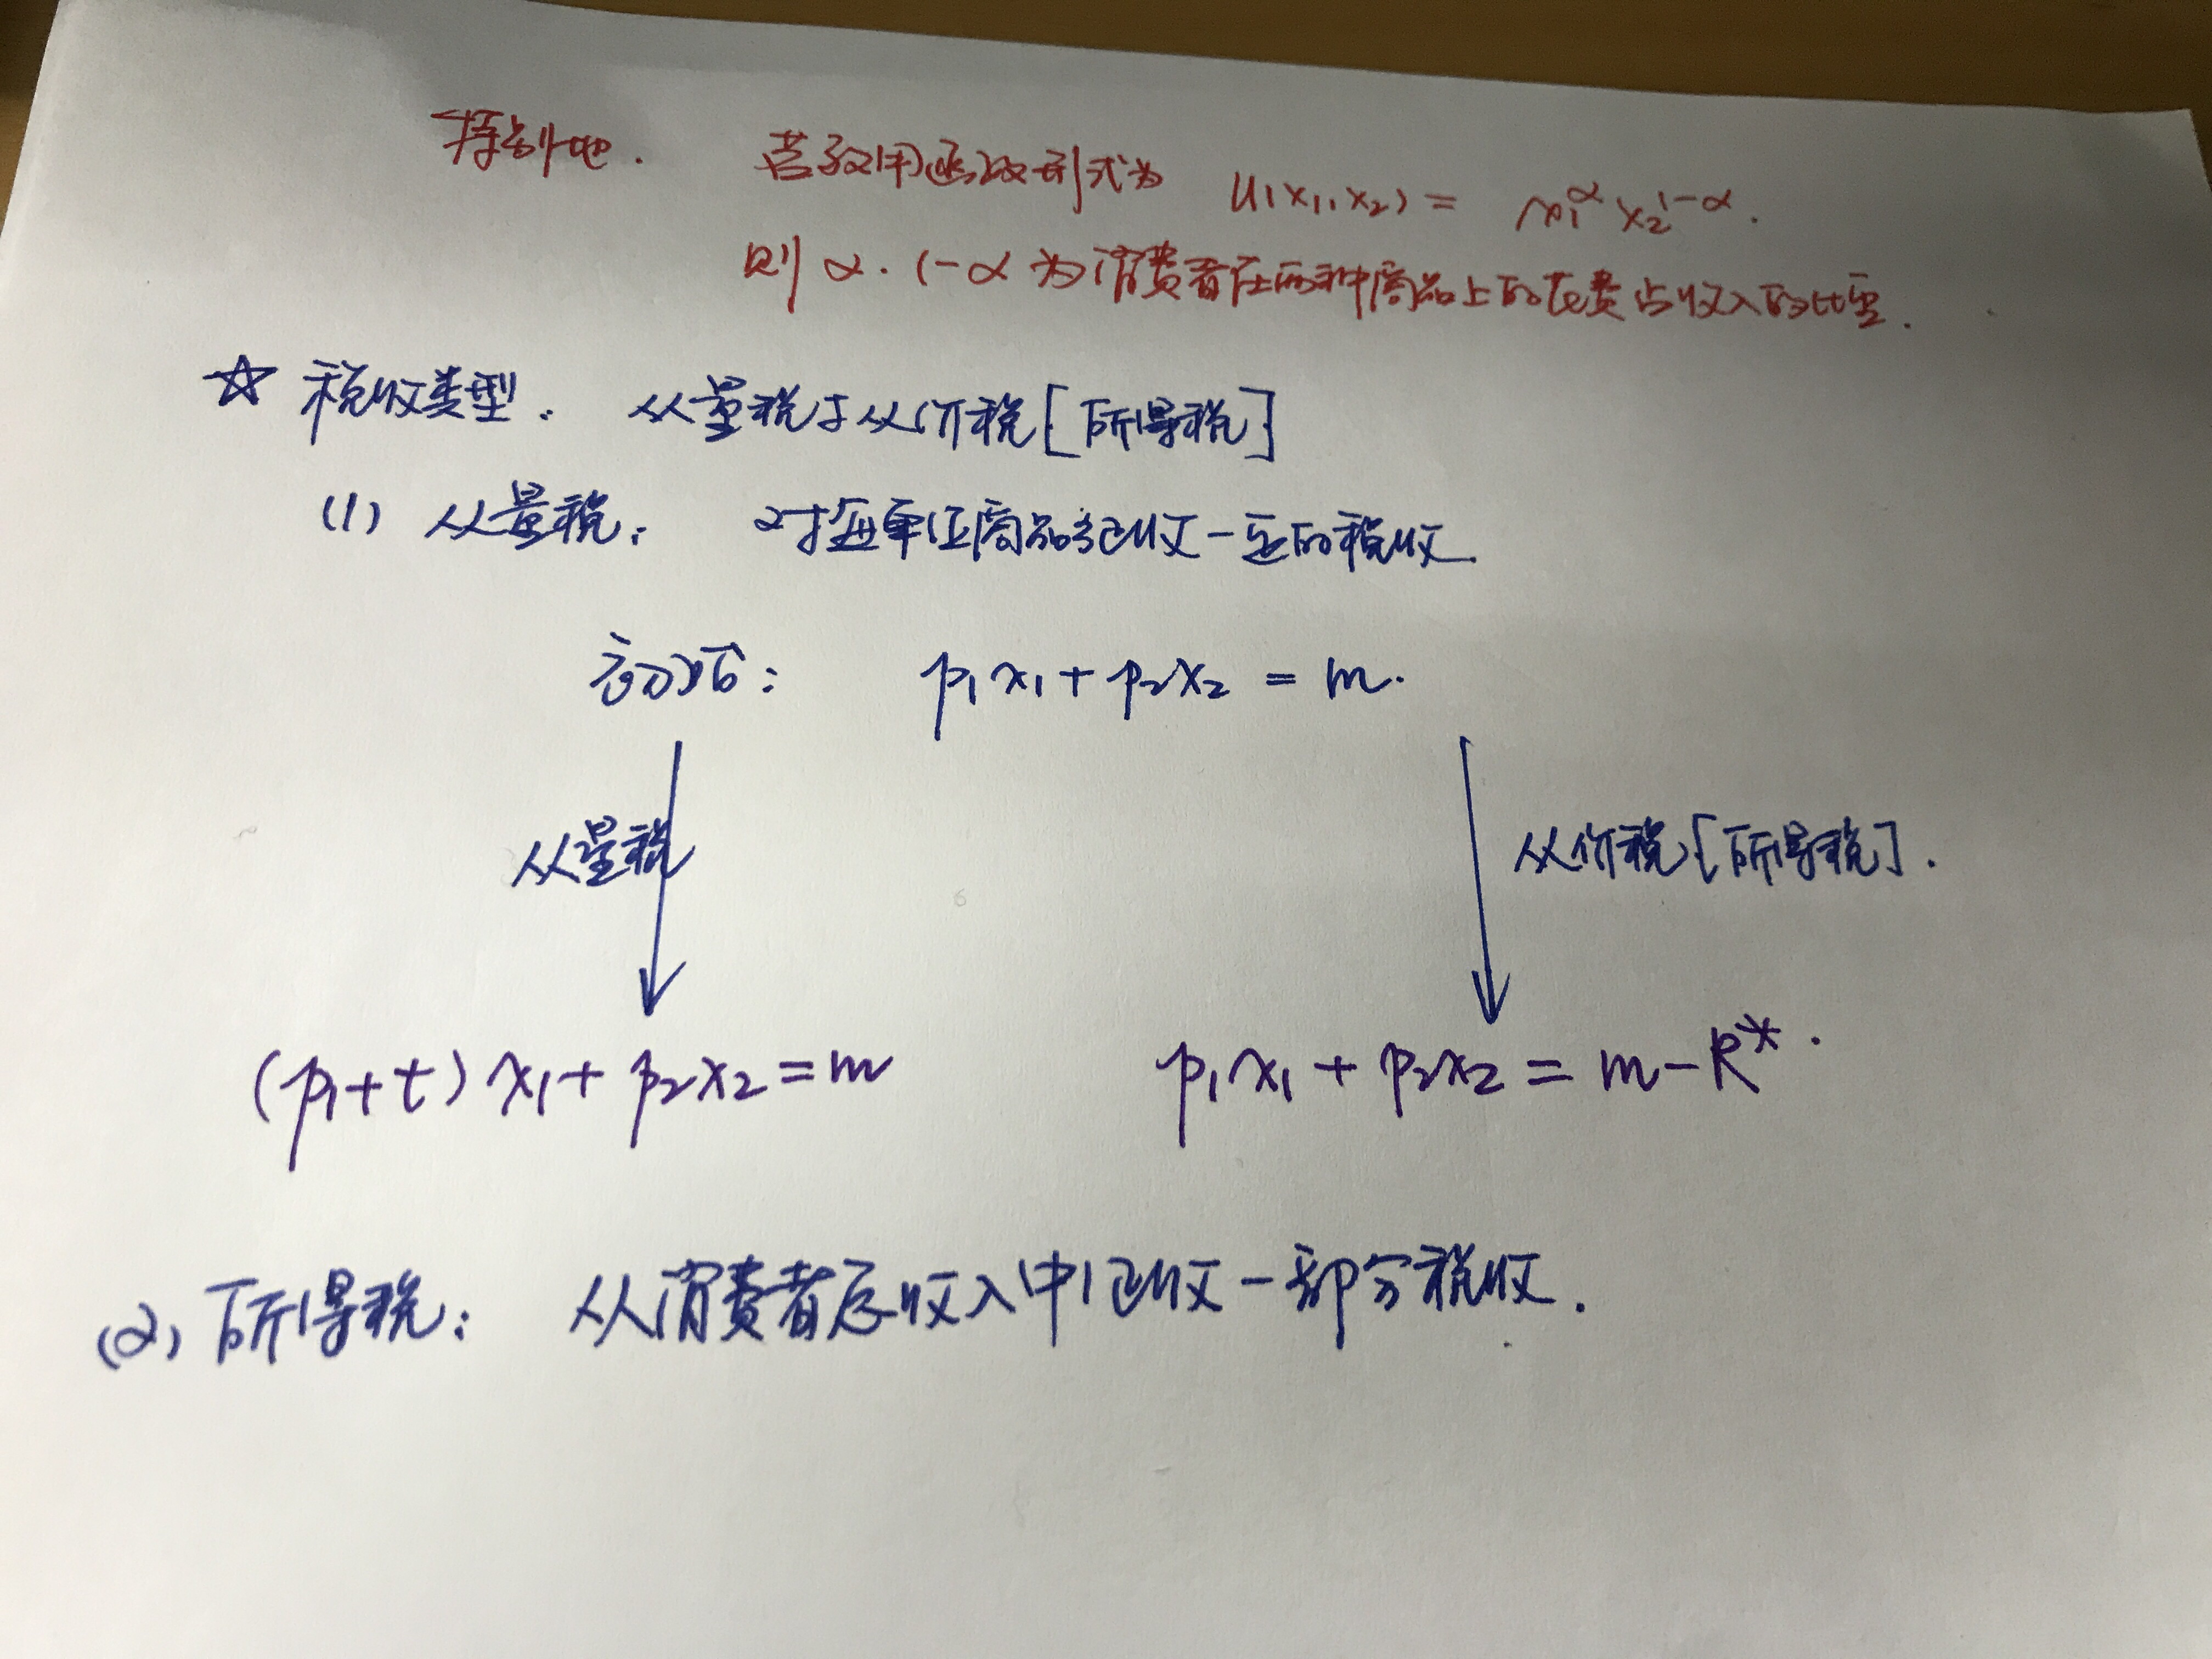 特别地. 若效用函数形式为 u(x₁,x₂) = x₁^α x₂^1-α.
则 α. 1-α 为消费者在两种商品上的花费占收入的比重.
☆ 税收类型: 从量税与从价税[所得税]
(1) 从量税: 对每单位商品征收一定的税收.
初始: p₁x₁ + p₂x₂ = m.
从量税 从价税[所得税].
(p₁+t)x₁ + p₂x₂ = m p₁x₁ + p₂x₂ = m-R*.
(2) 所得税: 从消费者总收入中征收一部分税收.